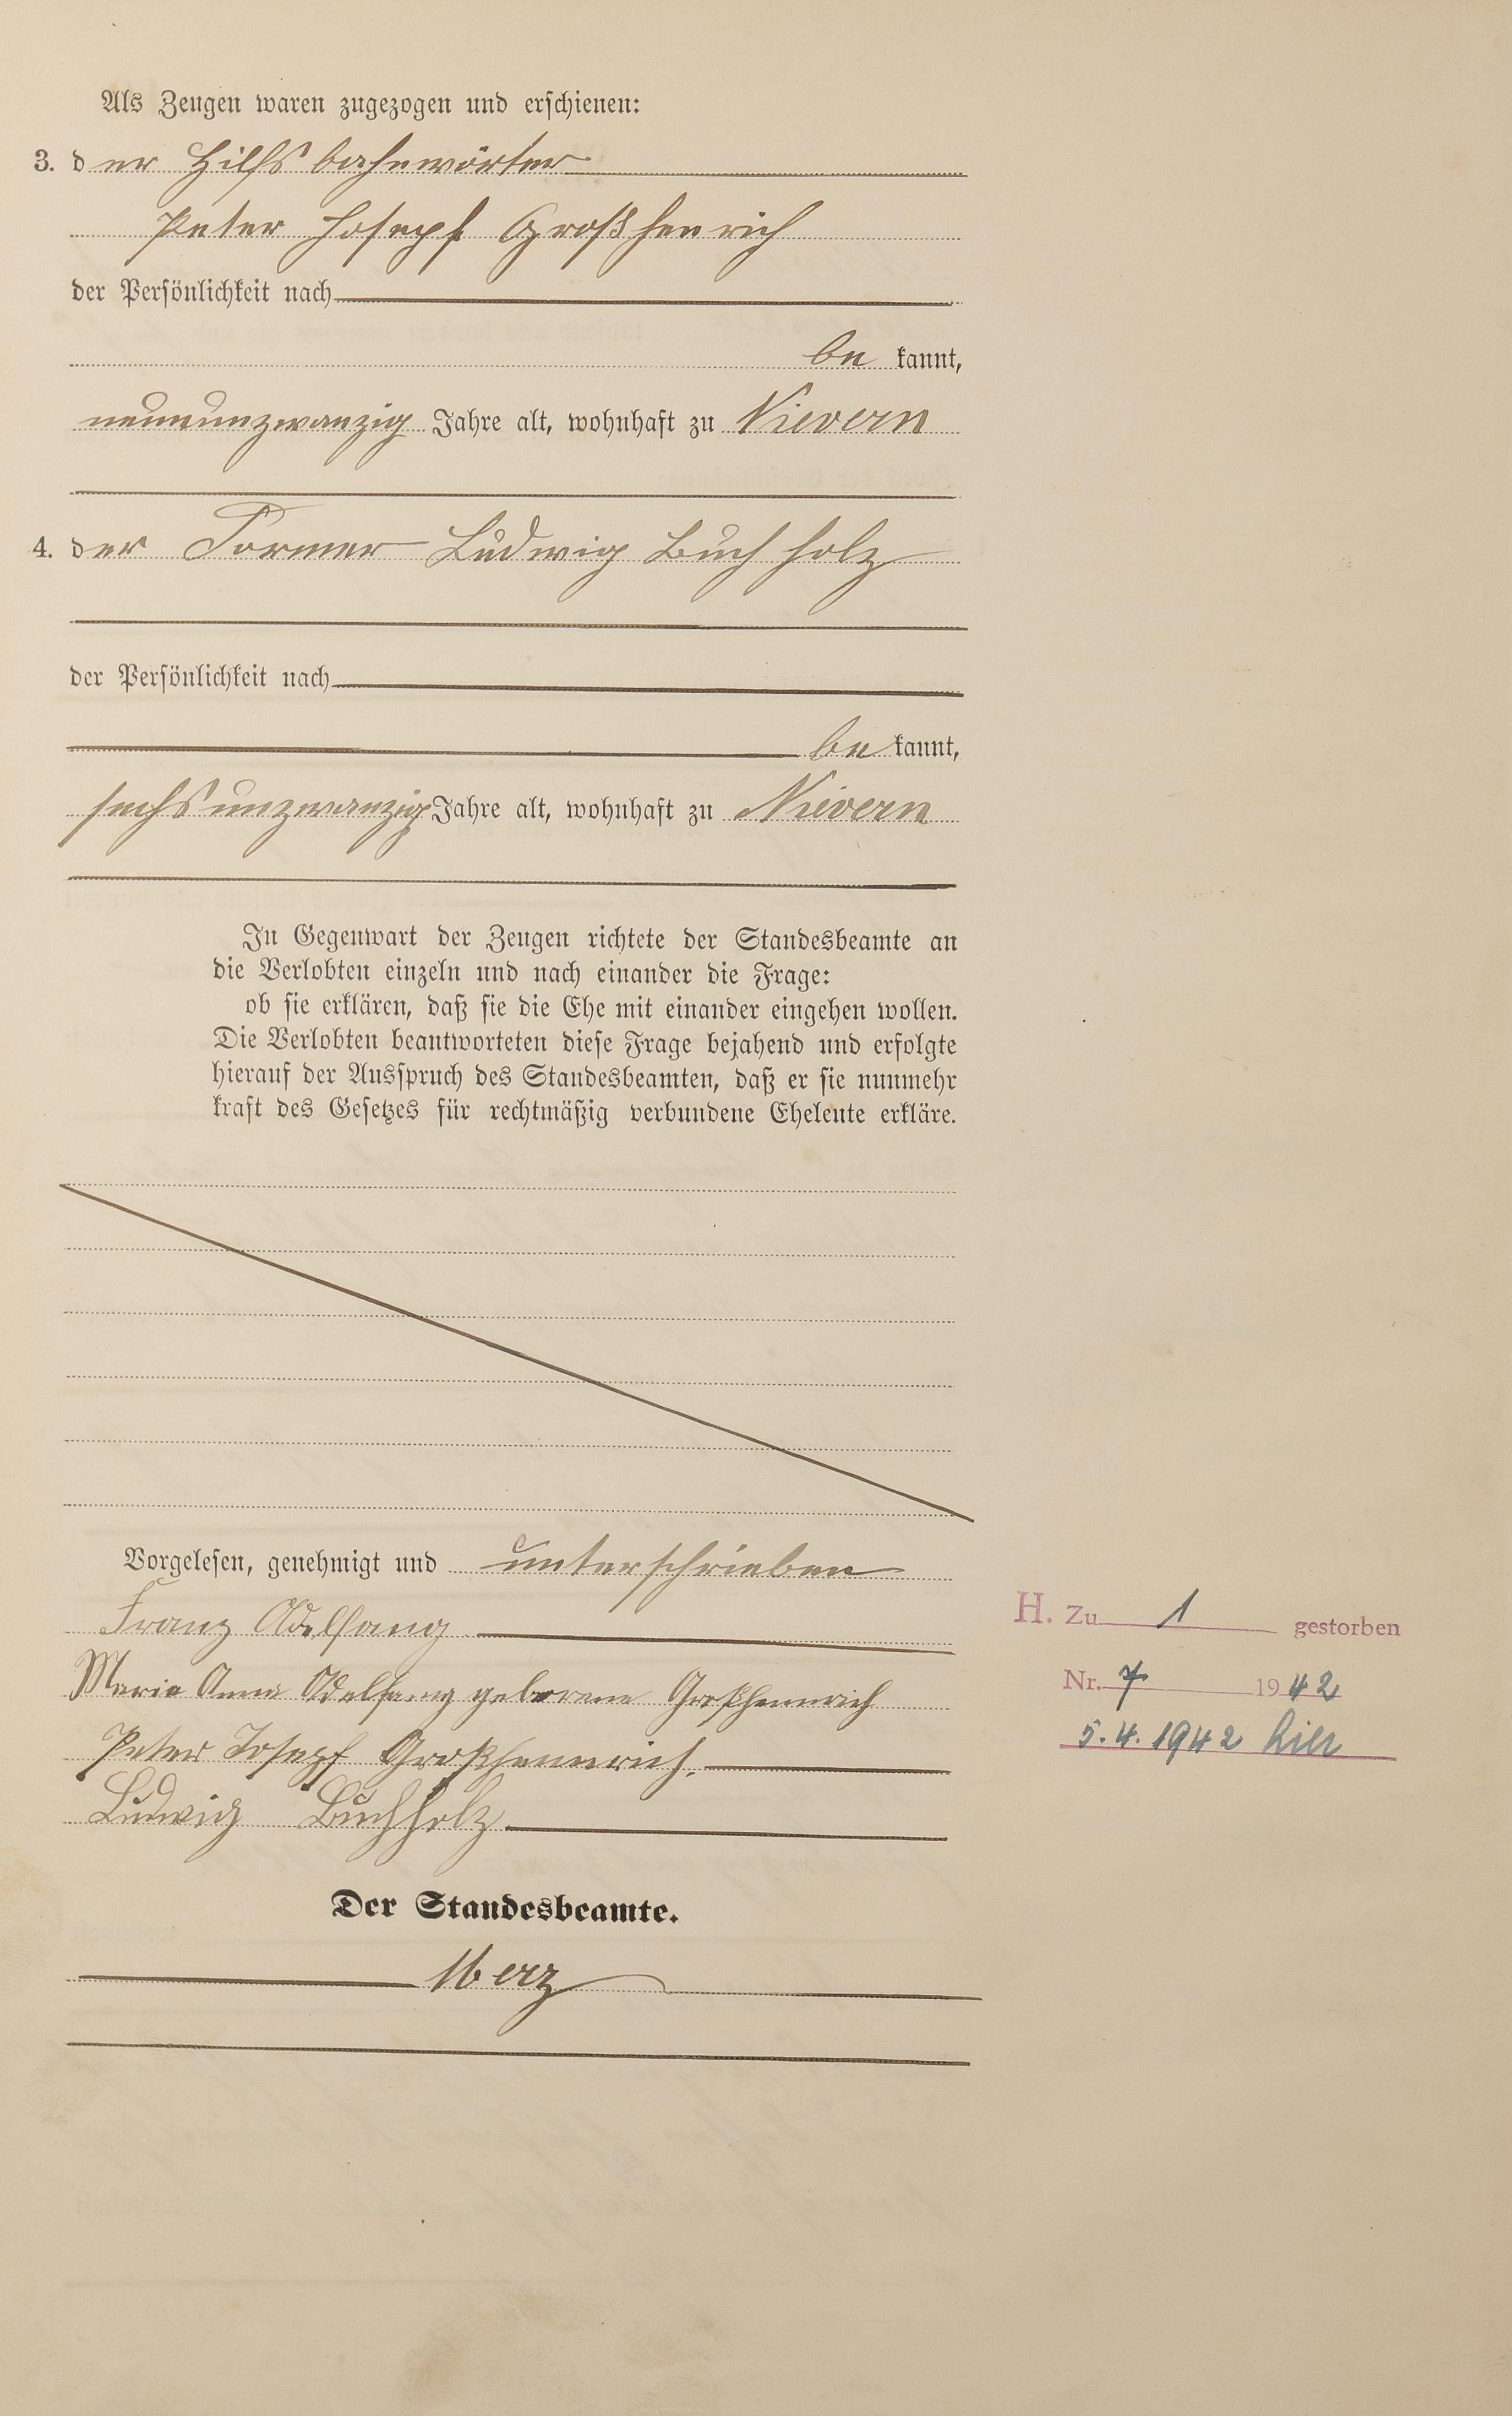 Als Zeugen waren zugezogen und erschienen:
3. der Hilfsbahnwärter
Peter Josepf Großhenrich
der Persönlichkeit nach
be kannt,
neunundzwanzig Jahre alt, wohnhaft zu Nievern
4. der Former Ludwig Buchholz
der Persönlichkeit nach
be kannt,
sechsunzwanzig Jahre alt, wohnhaft zu Nievern
In Gegenwart der Zeugen richtete der Standesbeamte an
die Verlobten einzeln und nach einander die Frage:
ob sie erklären, daß sie die Ehe mit einander eingehen wollen.
Die Verlobten beantworteten diese Frage bejahend und erfolgte
hierauf der Ausspruch des Standesbeamten, daß er sie nunmehr
kraft des Gesetzes für rechtmäßig verbundene Eheleute erkläre.
Vorgelesen, genehmigt und unterschrieben
Franz Adelfang
Maria Anna Adelfang geborene Großhennrich
Peter Josepf Großhennrich.
Ludwig Buchholz
Der Standesbeamte.
Merz
H. Zu 1 gestorben
Nr. 7 1942
5.4.1942 hier